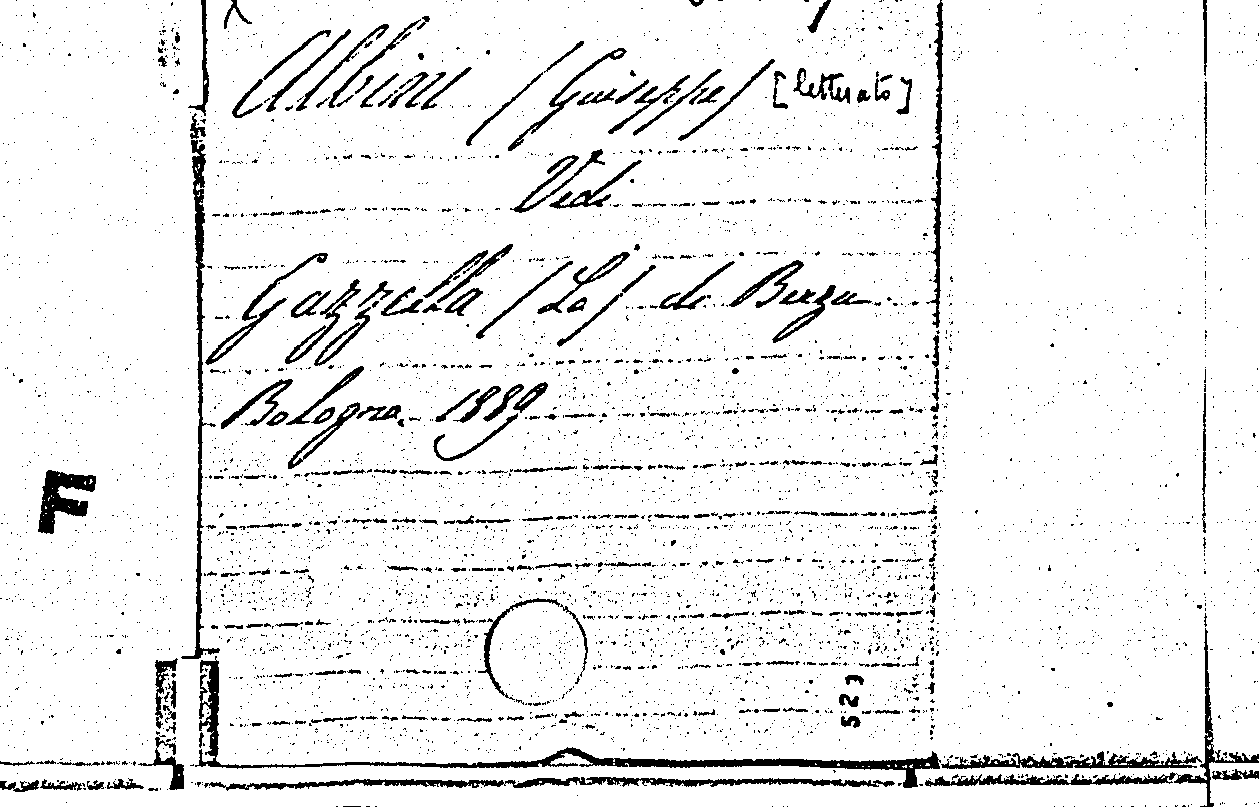 Albini (Giuseppe) [letterato]
Vedi
Gazzella (La) de
Bologna. 1889
F
523